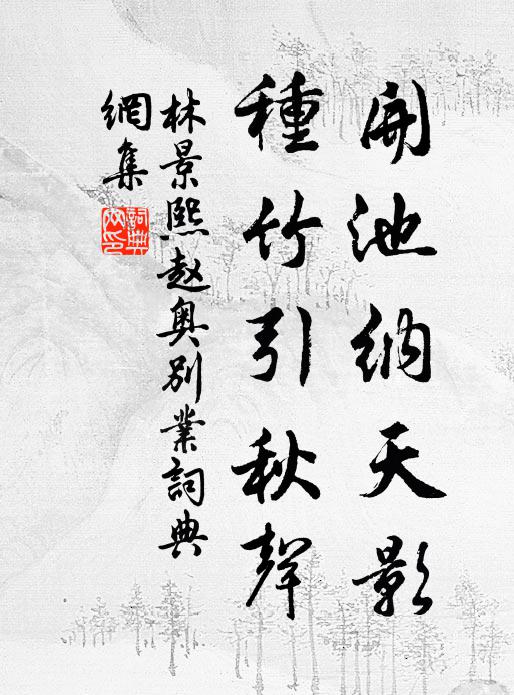 開池納天影
種竹引秋聲
林景熙赵奥别業詞典
網集
詞典
网印